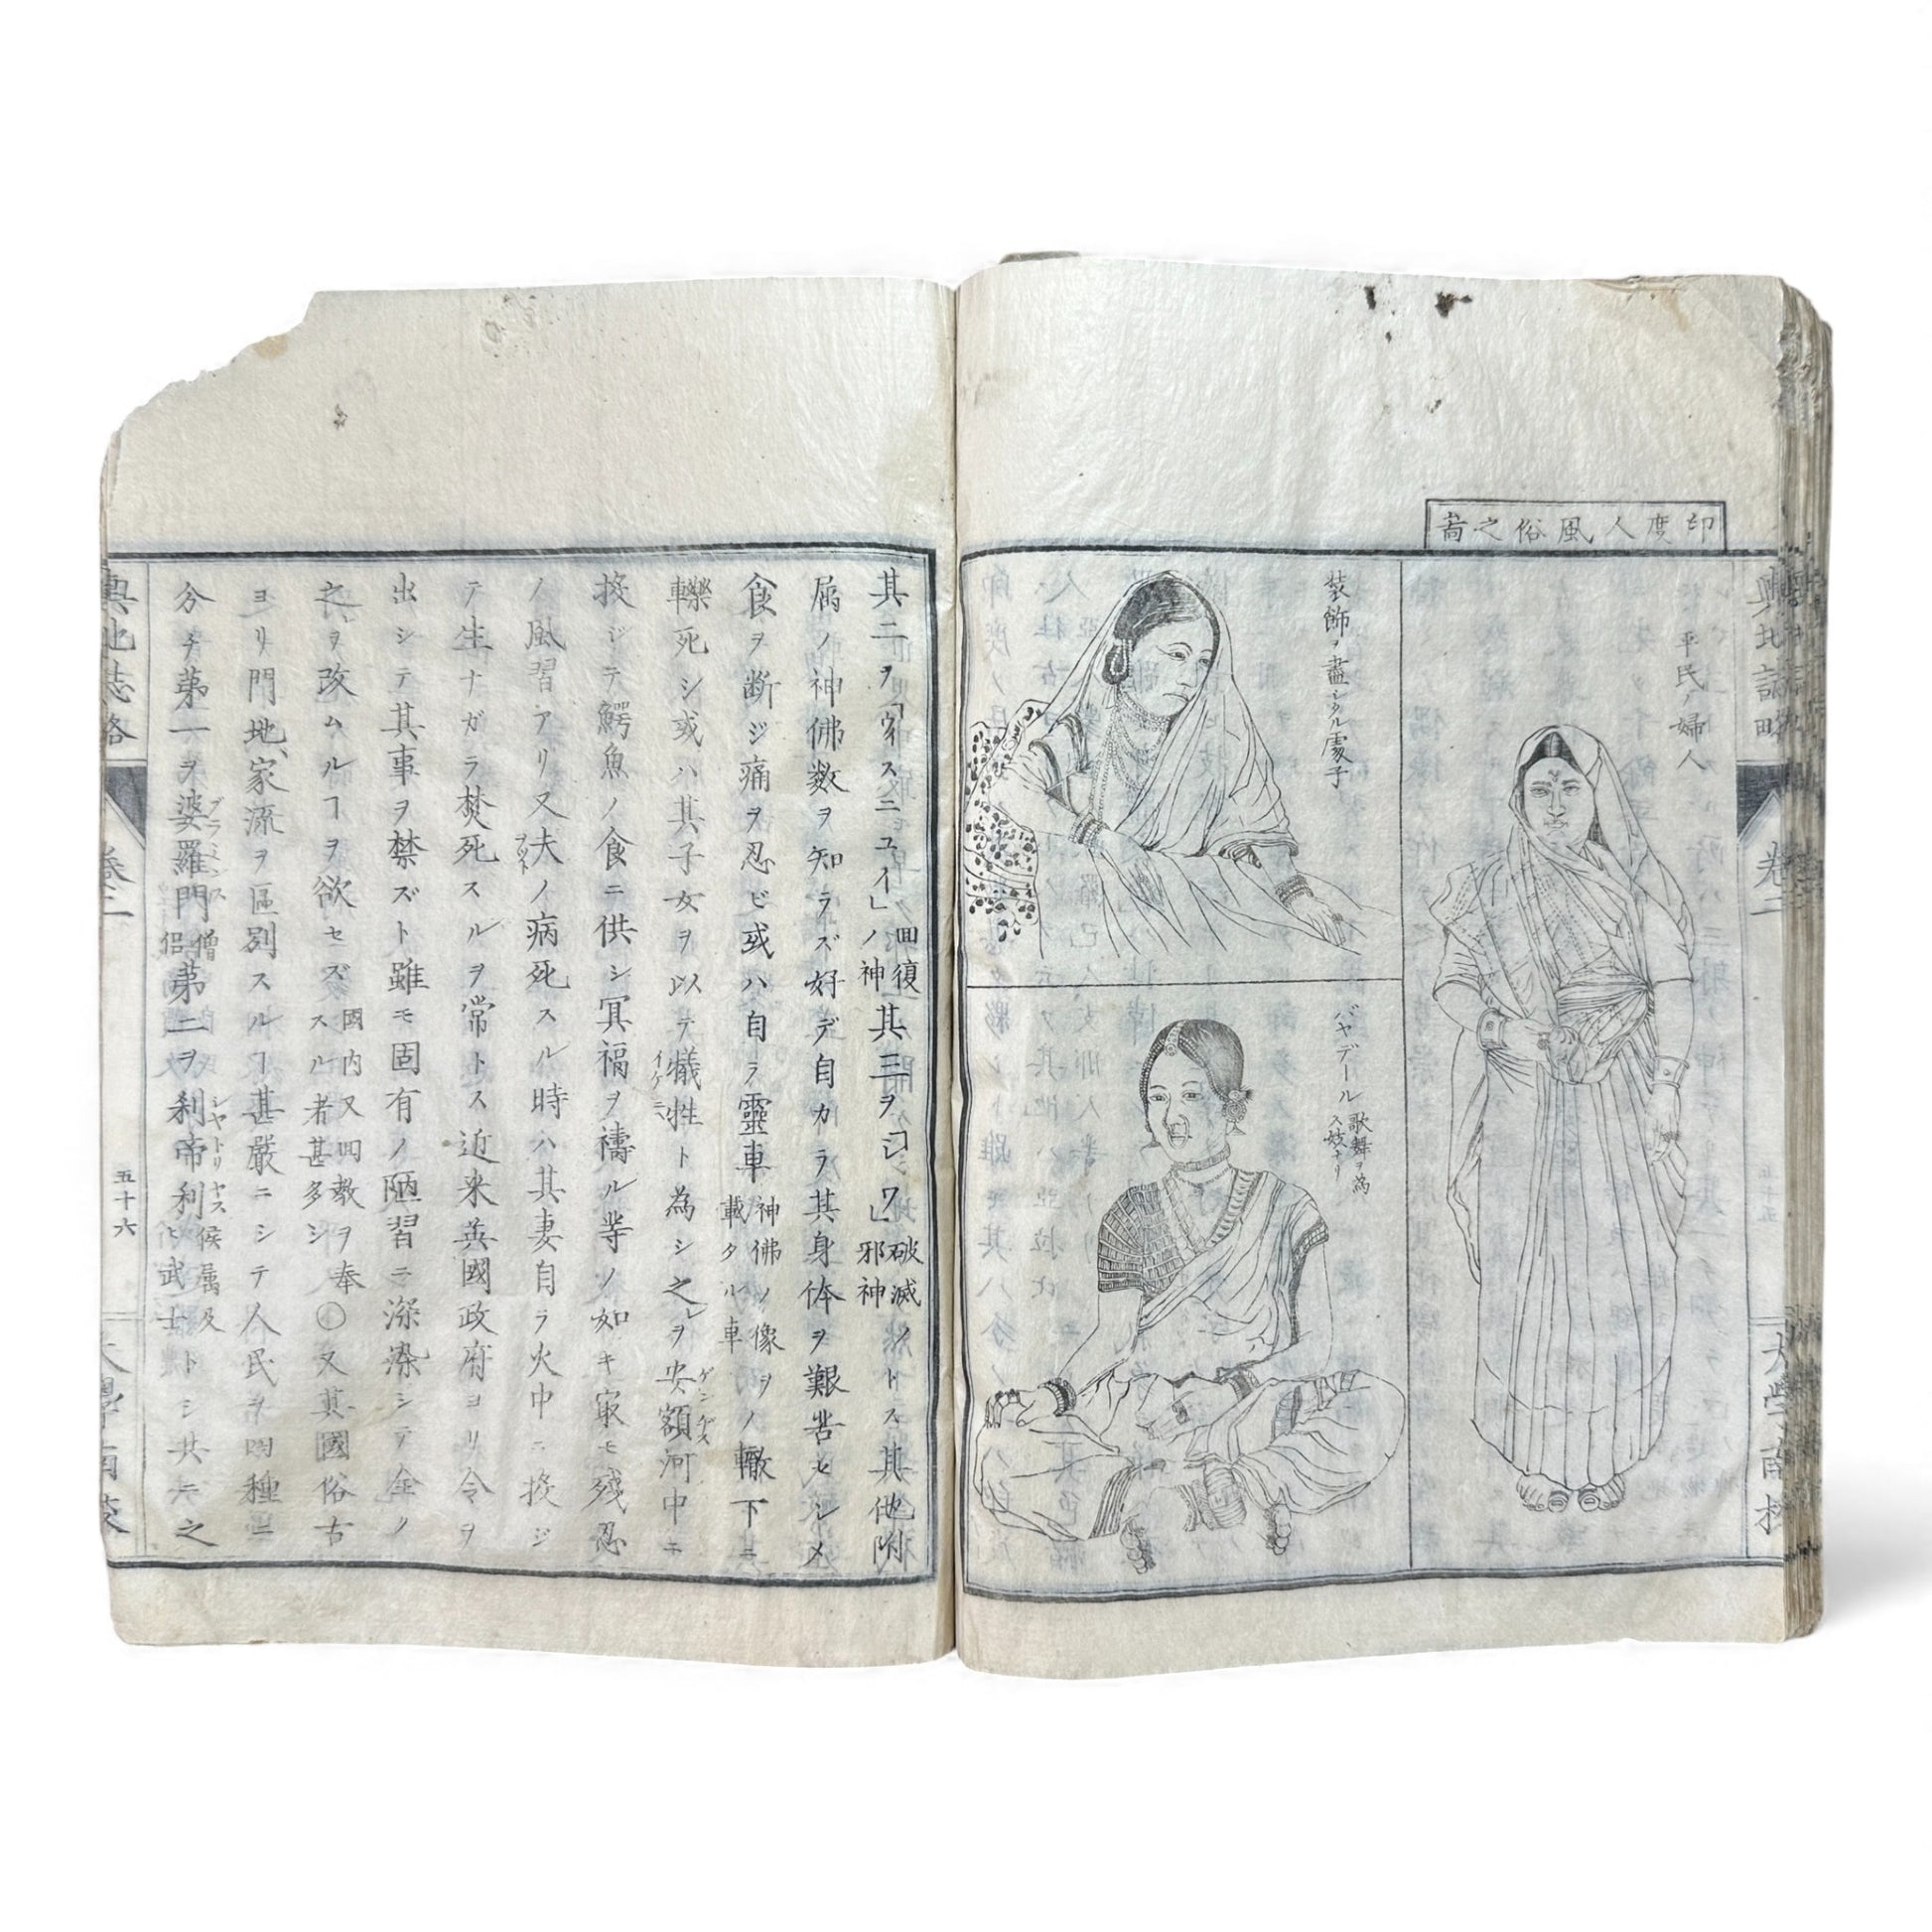 印度人風俗之啚
輿地誌略
卷二
大學南校
平民ノ婦人
装飾ノ盡シタル處子
バヤデール 歌舞ヲ為
ス妓ナリ
其二ヲ「ウィスニュイ」回復
ノ神其三ヲ「シワ」破滅ノ
邪神トス其他附
属ノ神佛数ヲ知ラズ好デ自カラ其身体ヲ艱苦セシメ
食ヲ断ジ痛ヲ忍ビ或ハ自ラ靈車神佛ノ像ヲ
載タル車ノ轍下ニ
轢死シ或ハ其子女ヲ以テ犠牲イケニヘト為シ之ヲ安額ゲンゲス河中ニ
投ジテ鰐魚ノ食ニ供シ冥福ヲ禱ル等ノ如キ寂モ残忍
ノ風習アリ又夫ヲットノ病死スル時ハ其妻自ラ火中ニ投ジ
テ生ナガラ焚死スルヲ常トス近来英國政府ヨリ令ヲ
出シテ其事ヲ禁ズト雖モ固有ノ陋習ニ深染シテ全ク
之ヲ改ムルヿヲ欲セズ國内又回教ヲ奉
スル者甚多シ〇又其國俗古
ヨリ門地家流ヲ區別スルヿ甚嚴ニシテ人民ヲ四種ニ
分チ第一ヲ婆羅門ブラミンス僧
侶第二ヲ刹帝利シヤトリヤス侯属及
ヒ武士トシ共ニ之
輿地誌略
卷二
五十六
大學南校